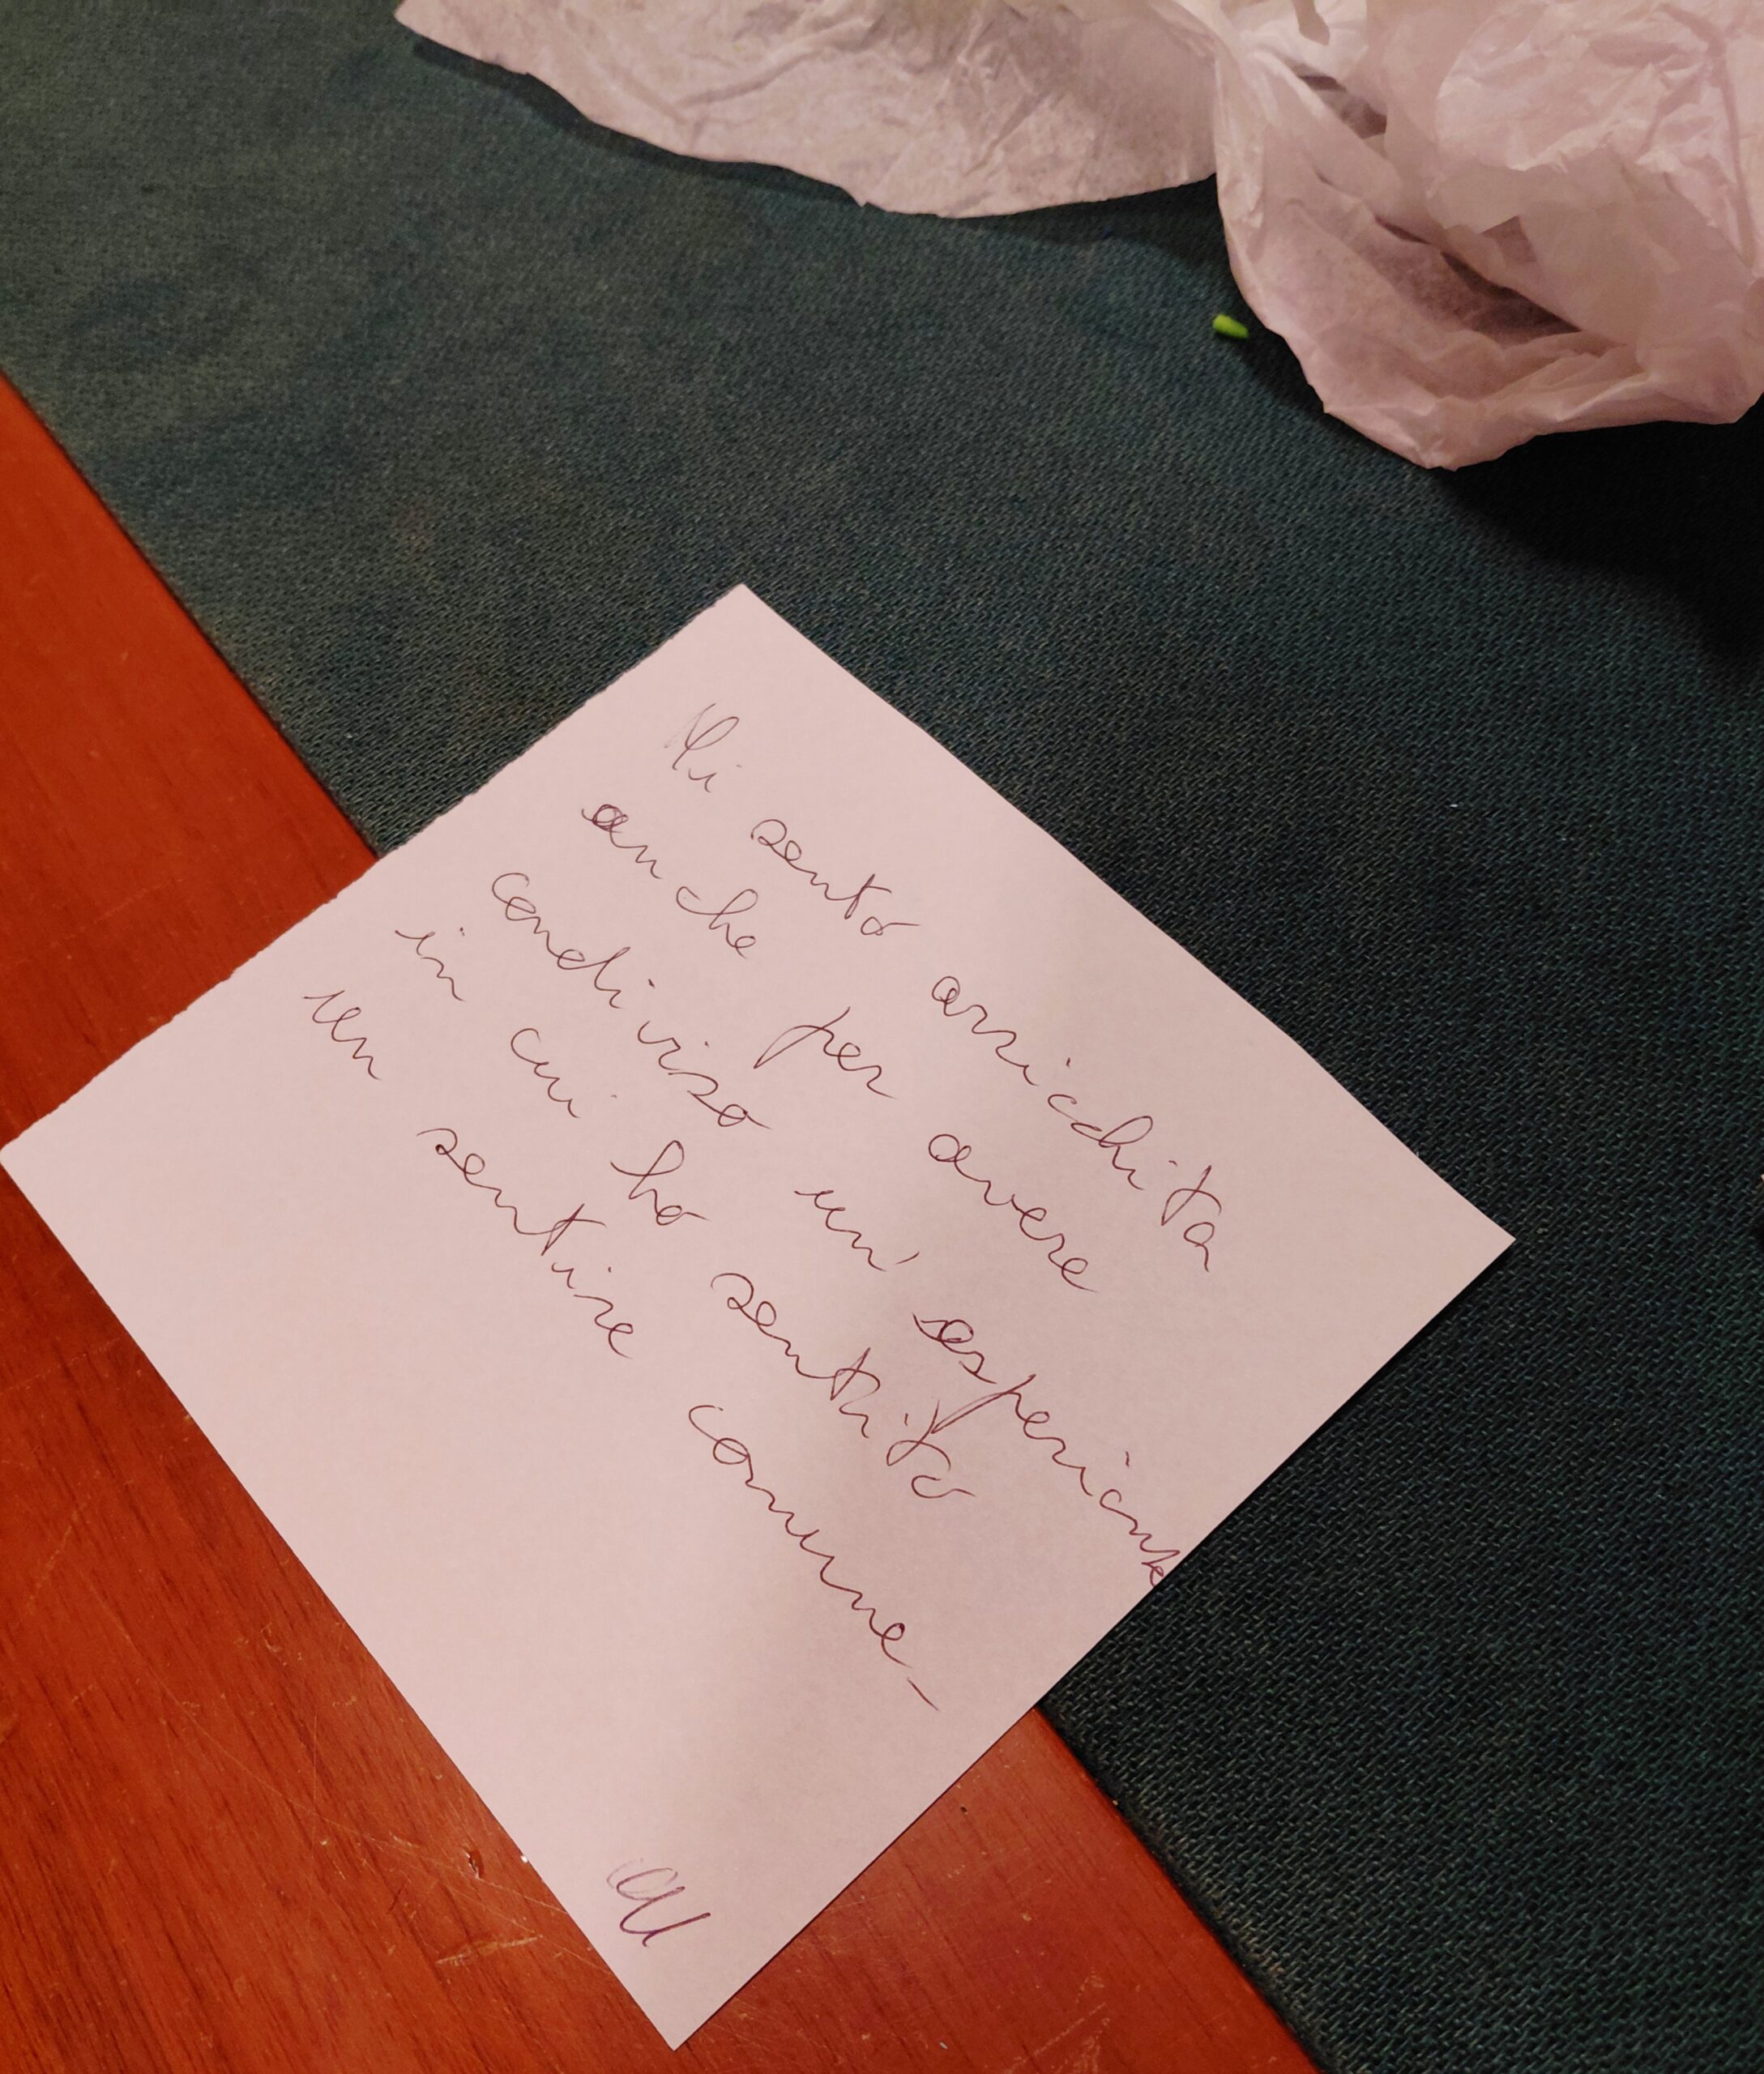 Mi sento arricchita
anche per avere
condiviso un' esperienza
in cui ho sentito
un sentire comune -